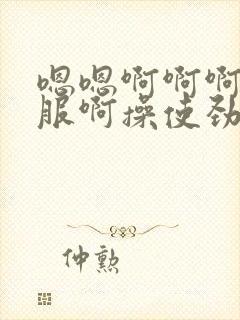 嗯嗯啊啊啊
服啊操使劲
仲勲